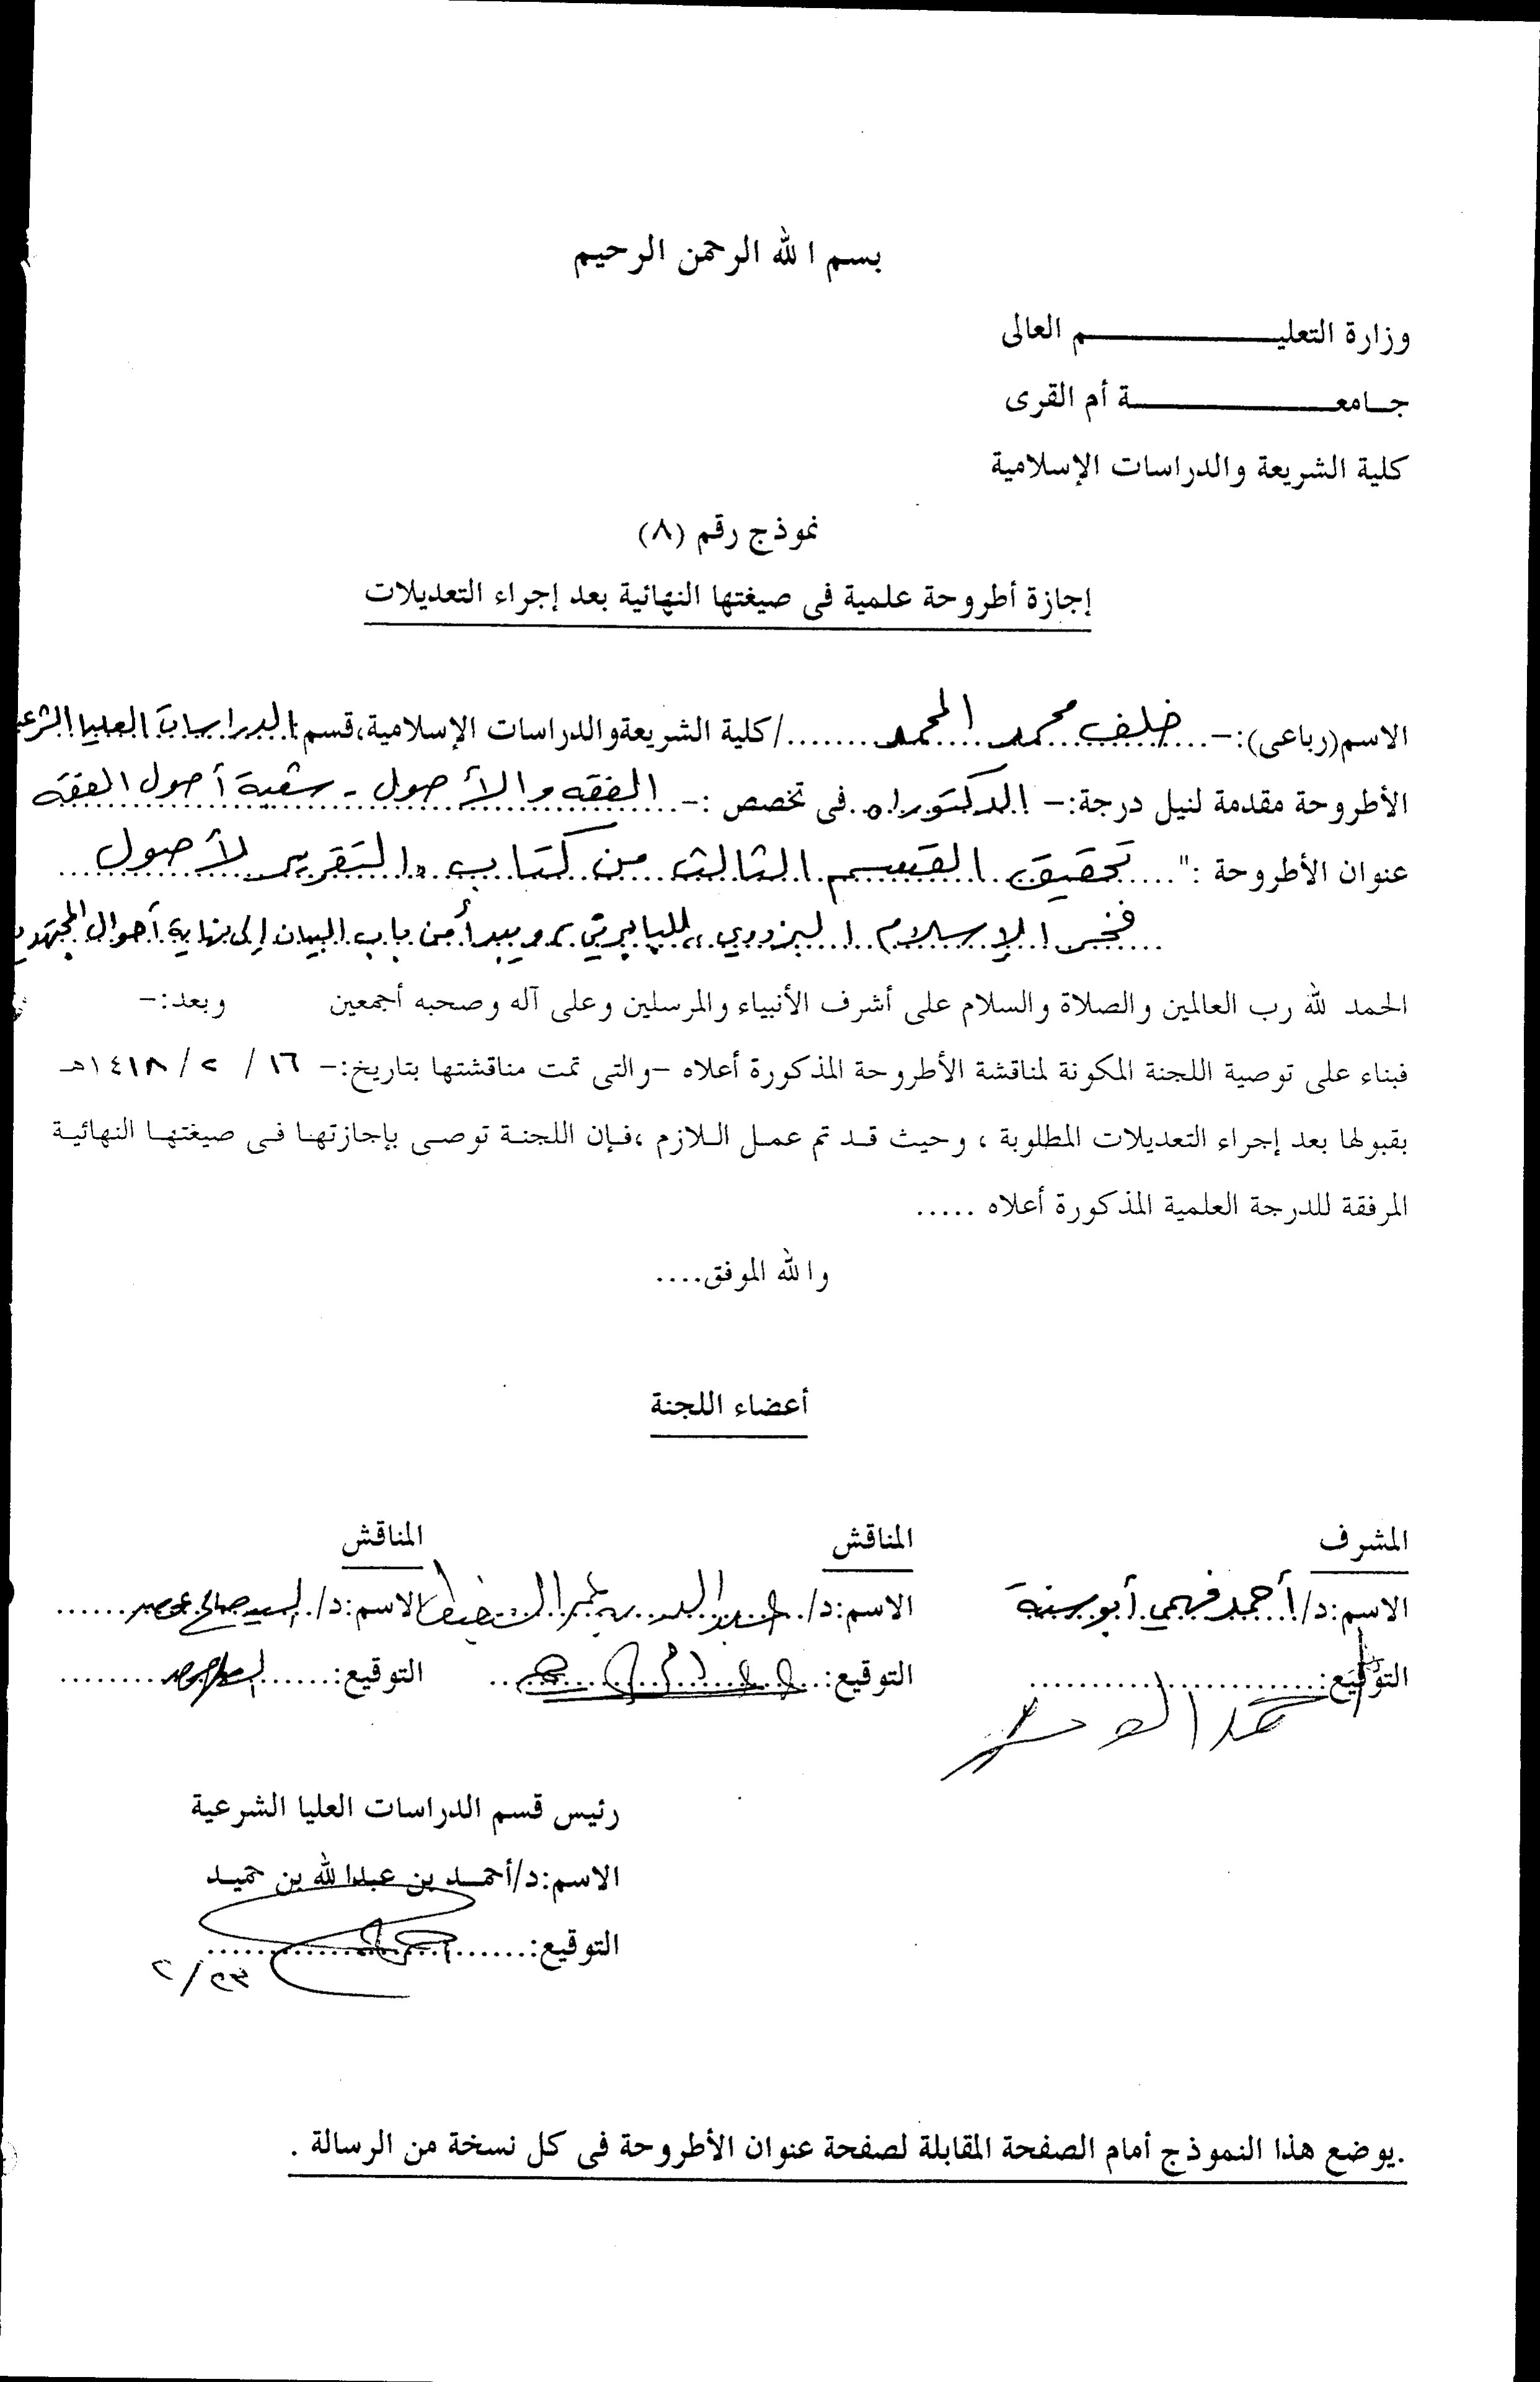 بسم الله الرحمن الرحيم
وزارة التعليـــــــــــم العالى
جــامعـــــــــــــة أم القرى
كلية الشريعة والدراسات الإسلامية
نموذج رقم (٨)
إجازة أطروحة علمية فى صيغتها النهائية بعد إجراء التعديلات
الاسم(رباعى):- خلف محمد المحمد /كلية الشريعة والدراسات الإسلامية،قسم: الدراسات العليا الشرعية
الأطروحة مقدمة لنيل درجة:- الدكتوراه فى تخصص :- الفقه والأصول - شعبة أصول الفقه
عنوان الأطروحة :" تحقيق القسم الثالث من كتاب "التقرير لأصول
فخر الإسلام البزدوي" للبابرتي، ويبدأ من باب البيان إلى نهاية أحوال المجتهدين
الحمد لله رب العالمين والصلاة والسلام على أشرف الأنبياء والمرسلين وعلى آله وصحبه أجمعين وبعد:-
فبناء على توصية اللجنة المكونة لمناقشة الأطروحة المذكورة أعلاه -والتى تمت مناقشتها بتاريخ:- ١٦ / ٢ / ١٤١٨هـ
بقبولها بعد إجراء التعديلات المطلوبة ، وحيث قد تم عمل اللازم ،فإن اللجنة توصى بإجازتها فى صيغتها النهائية
المرفقة للدرجة العلمية المذكورة أعلاه .....
والله الموفق....
أعضاء اللجنة
المشرف المناقش المناقش
الاسم:د/ أحمد فهمي أبو سنة الاسم:د/ الاسم:د/ السيد صالح عوض
التوقيع: التوقيع: التوقيع:
رئيس قسم الدراسات العليا الشرعية
الاسم:د/أحمـد بن عبدالله بن حميـد
التوقيع:
٢/٢٣
.يوضع هذا النموذج أمام الصفحة المقابلة لصفحة عنوان الأطروحة فى كل نسخة من الرسالة .